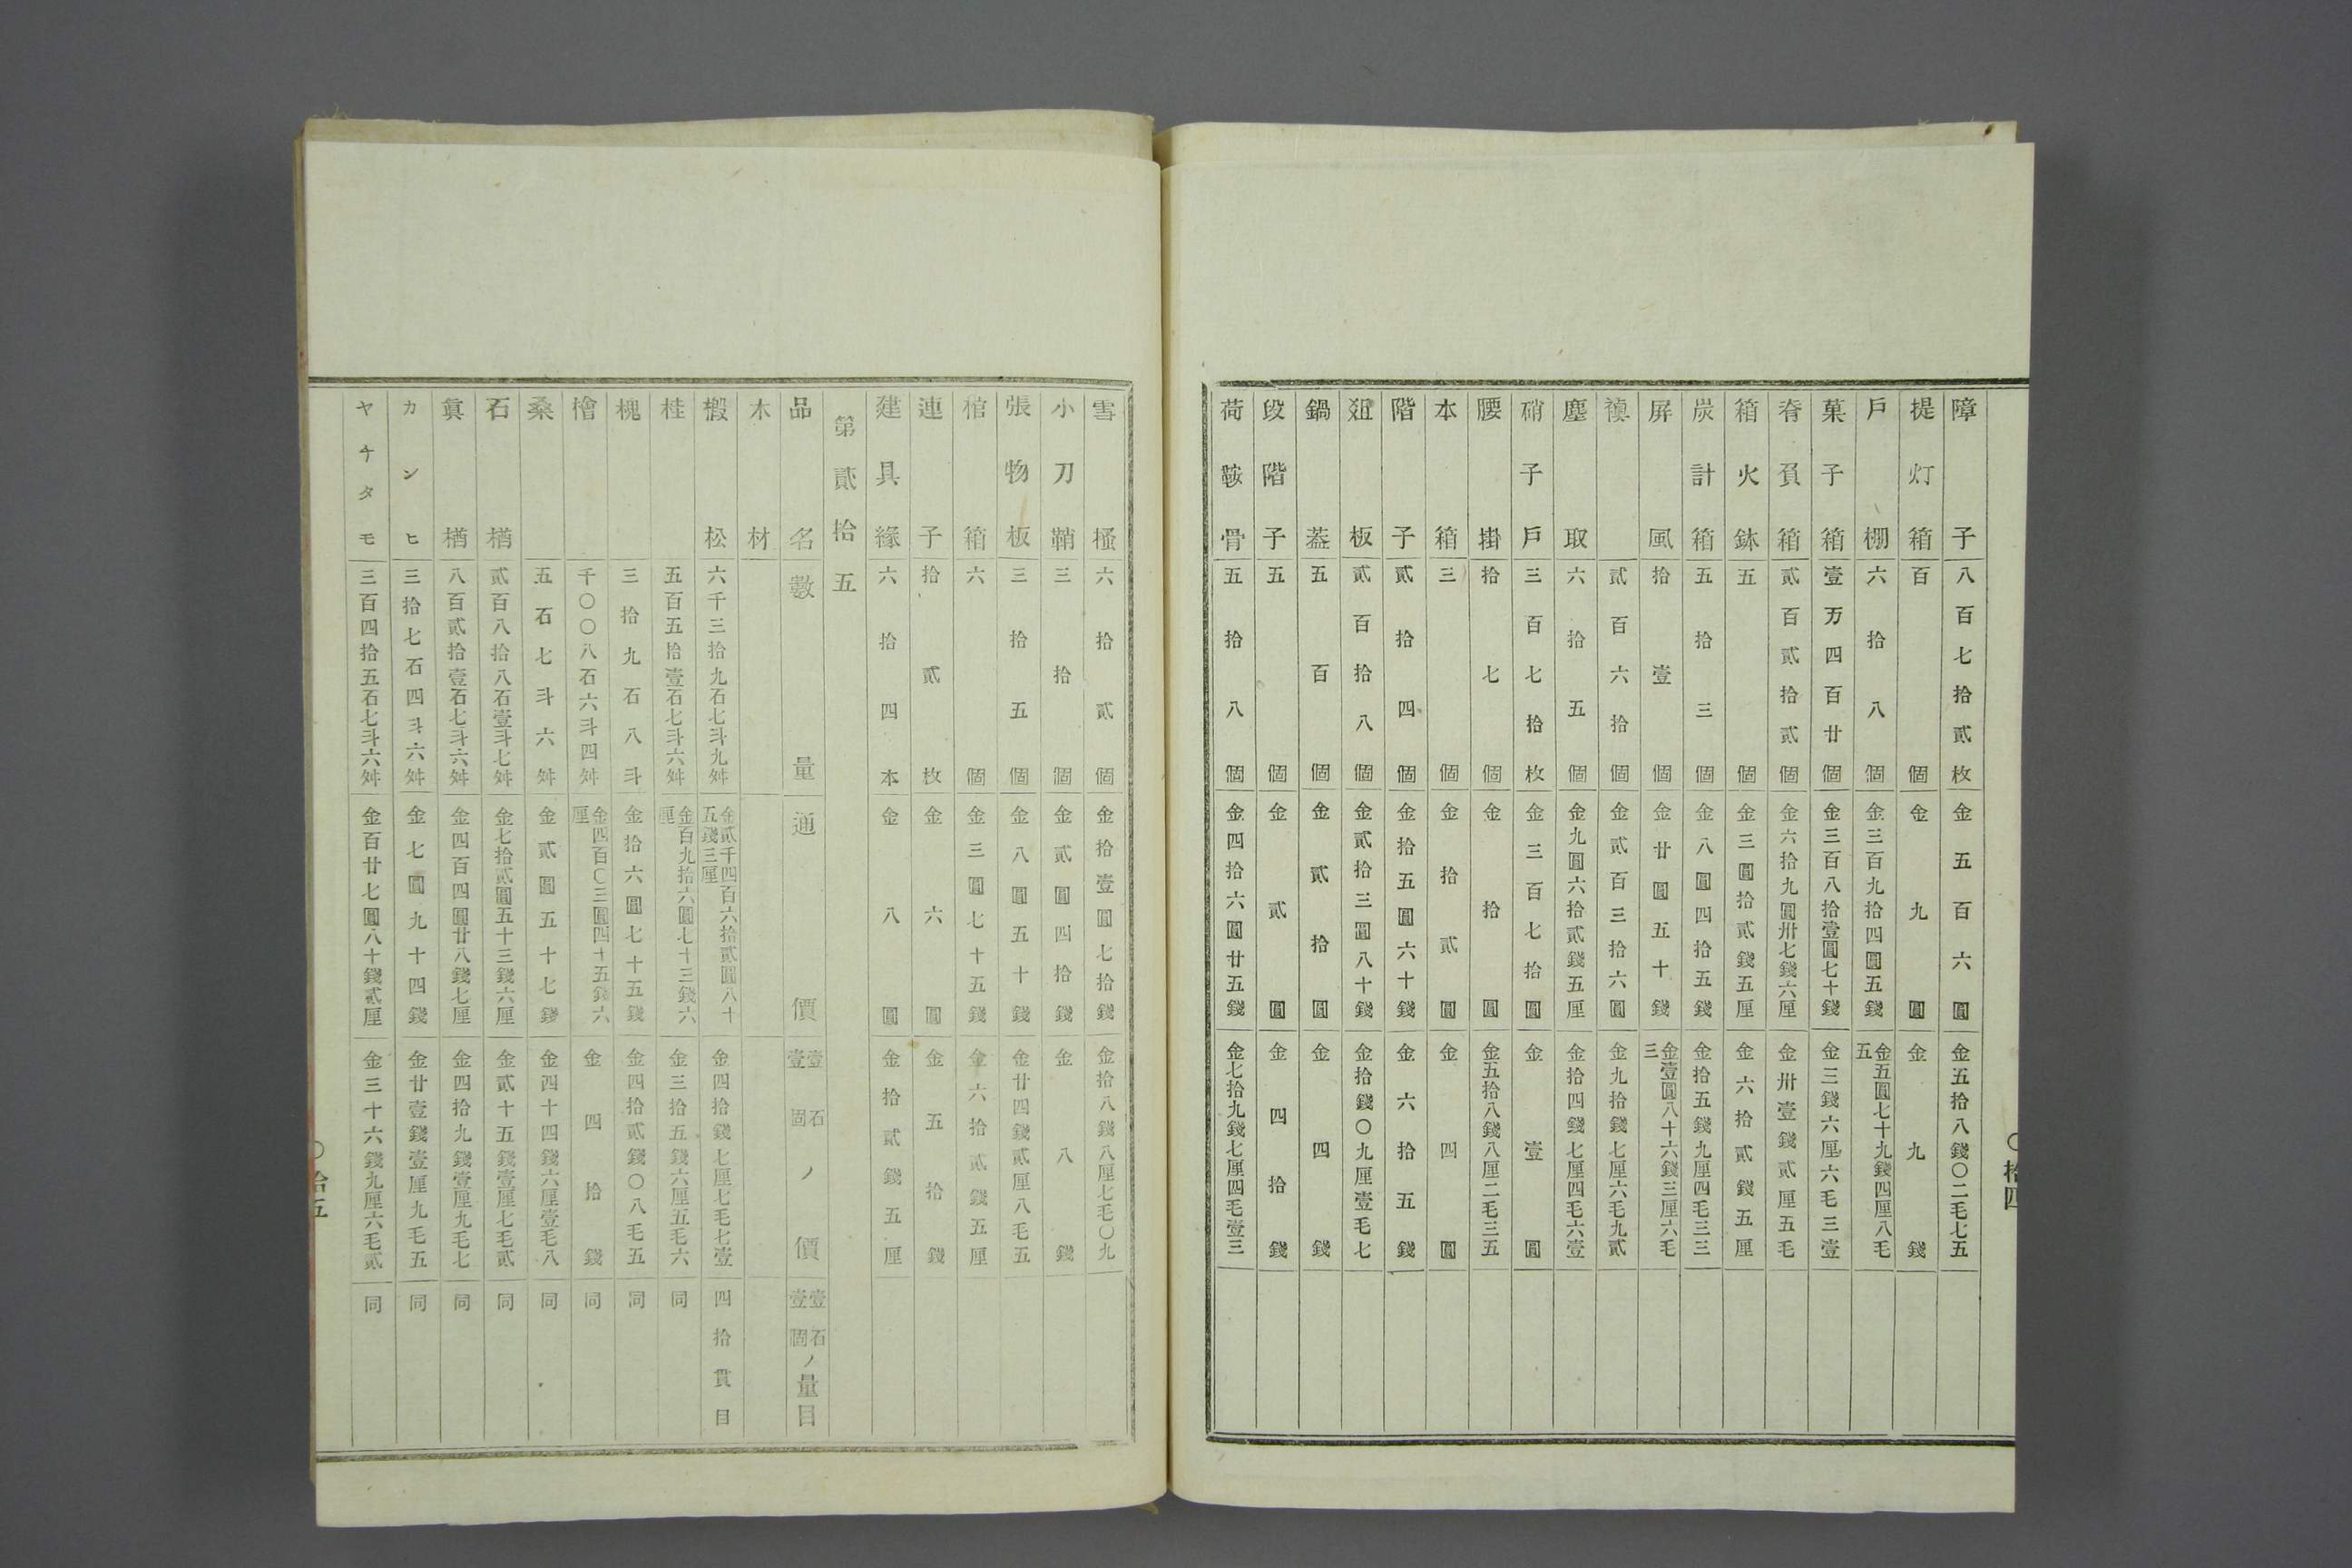 障子 八百七拾貳枚 金五百六圓 金五拾八錢〇二毛七五
提灯箱 百個 金九圓 金九錢
戶棚 六拾八個 金三百九拾四圓五錢 金五圓七十九錢四厘八毛五
菓子箱 壹万四百廿個 金三百八拾壹圓七十錢 金三錢六厘六毛三壹
脊負箱 貳百貳拾貳個 金六拾九圓卅七錢六厘 金卅壹錢貳厘五毛
箱火鉢 五個 金三圓拾貳錢五厘 金六拾貳錢五厘
炭計箱 五拾三個 金八圓四拾五錢 金拾五錢九厘四毛三三
屏風 拾壹個 金廿圓五十錢 金壹圓八十六錢三厘六毛三
貳百六拾個 金貳百三拾六圓 金九拾錢七厘六毛九貳
塵取 六拾五個 金九圓六拾貳錢五厘 金拾四錢七厘四毛六壹
硝子戶 三百七拾枚 金三百七拾圓 金壹圓
腰掛 拾七個 金拾圓 金五拾八錢八厘二毛三五
本箱 三個 金拾貳圓 金四圓
階子 貳拾四個 金拾五圓六十錢 金六拾五錢
俎板 貳百拾八個 金貳拾三圓八十錢 金拾錢〇九厘壹毛七
鍋蓋 五百個 金貳拾圓 金四錢
段階子 五個 金貳圓 金四拾錢
荷鞍骨 五拾八個 金四拾六圓廿五錢 金七拾九錢七厘四毛壹三
〇拾四
雪橇 六拾貳個 金拾壹圓七拾錢 金拾八錢八厘七毛〇九
小刀鞘 三拾個 金貳圓四拾錢 金八錢
張物板 三拾五個 金八圓五十錢 金廿四錢貳厘八毛五
棺箱 六個 金三圓七十五錢 金六拾貳錢五厘
連子 拾貳枚 金六圓 金五拾錢
建具緣 六拾四本 金八圓 金拾貳錢五厘
第貳拾五
品名 數量 通價 壹石壹固ノ價 壹石壹個ノ量目
木材
椴松 六千三拾九石七斗九舛 金貳千四百六拾貳圓八十五錢三厘 金四拾錢七厘七毛七壹 四拾貫目
桂 五百五拾壹石七斗六舛 金百九拾六圓七十三錢六厘 金三拾五錢六厘五毛六 同
槐 三拾九石八斗 金拾六圓七十五錢 金四拾貳錢〇八毛五 同
檜 千〇〇八石六斗四舛 金四百〇三圓四十五錢六厘 金四拾錢 同
桑 五石七斗六舛 金貳圓五十七錢 金四十四錢六厘壹毛八 同
石楢 貳百八拾八石壹斗七舛 金七拾貳圓五十三錢六厘 金貳十五錢壹厘七毛貳 同
眞楢 八百貳拾壹石七斗六舛 金四百四圓廿八錢七厘 金四拾九錢壹厘九毛七 同
カンヒ 三拾七石四斗六舛 金七圓九十四錢 金廿壹錢壹厘九毛五 同
ヤチタモ 三百四拾五石七斗六舛 金百廿七圓八十錢貳厘 金三十六錢九厘六毛貳 同
〇拾五